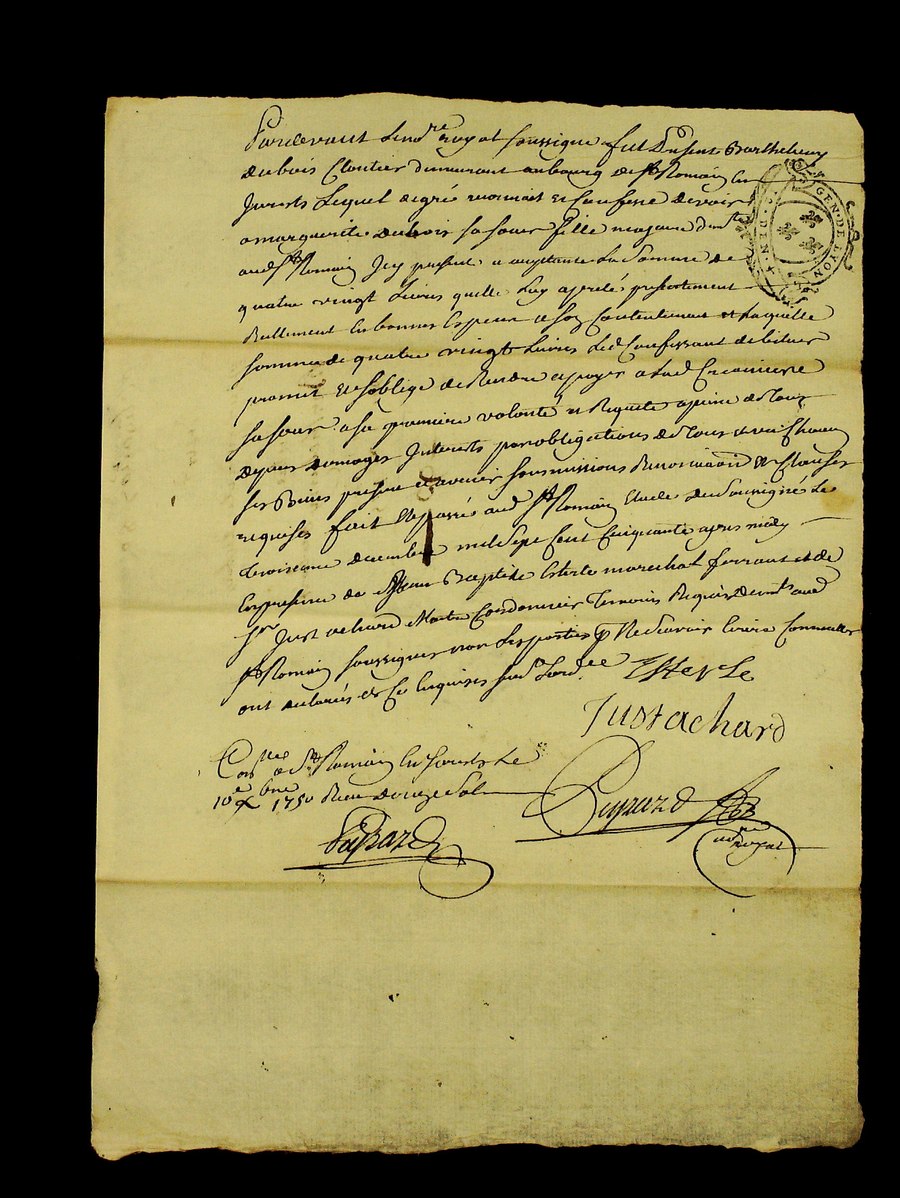 Pardevant le no.re royal soussigné fut présent Barthelemy
dubois Cloutier demeurant au bourg de St Romain en
Jarests Lequel de gré reconnoit et confesse devoir
a marguerite dubois sa soeur fille majeure dem.te
aud St Romain Icy presente et acceptante La Somme de
quatre vingt Livres quelle Luy a preté presentement
Reellement en bonnes Especes a son Contentement et Laquelle
somme de quatre vingt Livres Led Confessant debiteur
promet et soblige de Rendre et payer a Lad Creanciere
sa soeur a sa premiere volonté et Requete a peine de Tous
depens domages Interests par obligations de Tous et un Chacun
ses Biens presens et avenir soumissions Renonciaons et Clauses
requises fait et passé aud St Romain Etude du Soussigné Le
troisieme decembre mil Sept Cent Cinquante apres midy
En presence de Jean Baptiste Esterle marechal ferrant et de
Sr Just achard Mtre Cordonnier Temoins Requis dem.ts aud
St Romain soussignés non Les parties p Ne Scavoir Ecrire Comme elles
ont declarés de Ce Enquises suiv.t Lord.ce Esterle
Just achard
Con.llé a St Romain en Jarests Le
10e Xbre 1750 Reçu douze Sols
GEN·DE LYON
DEN
royal